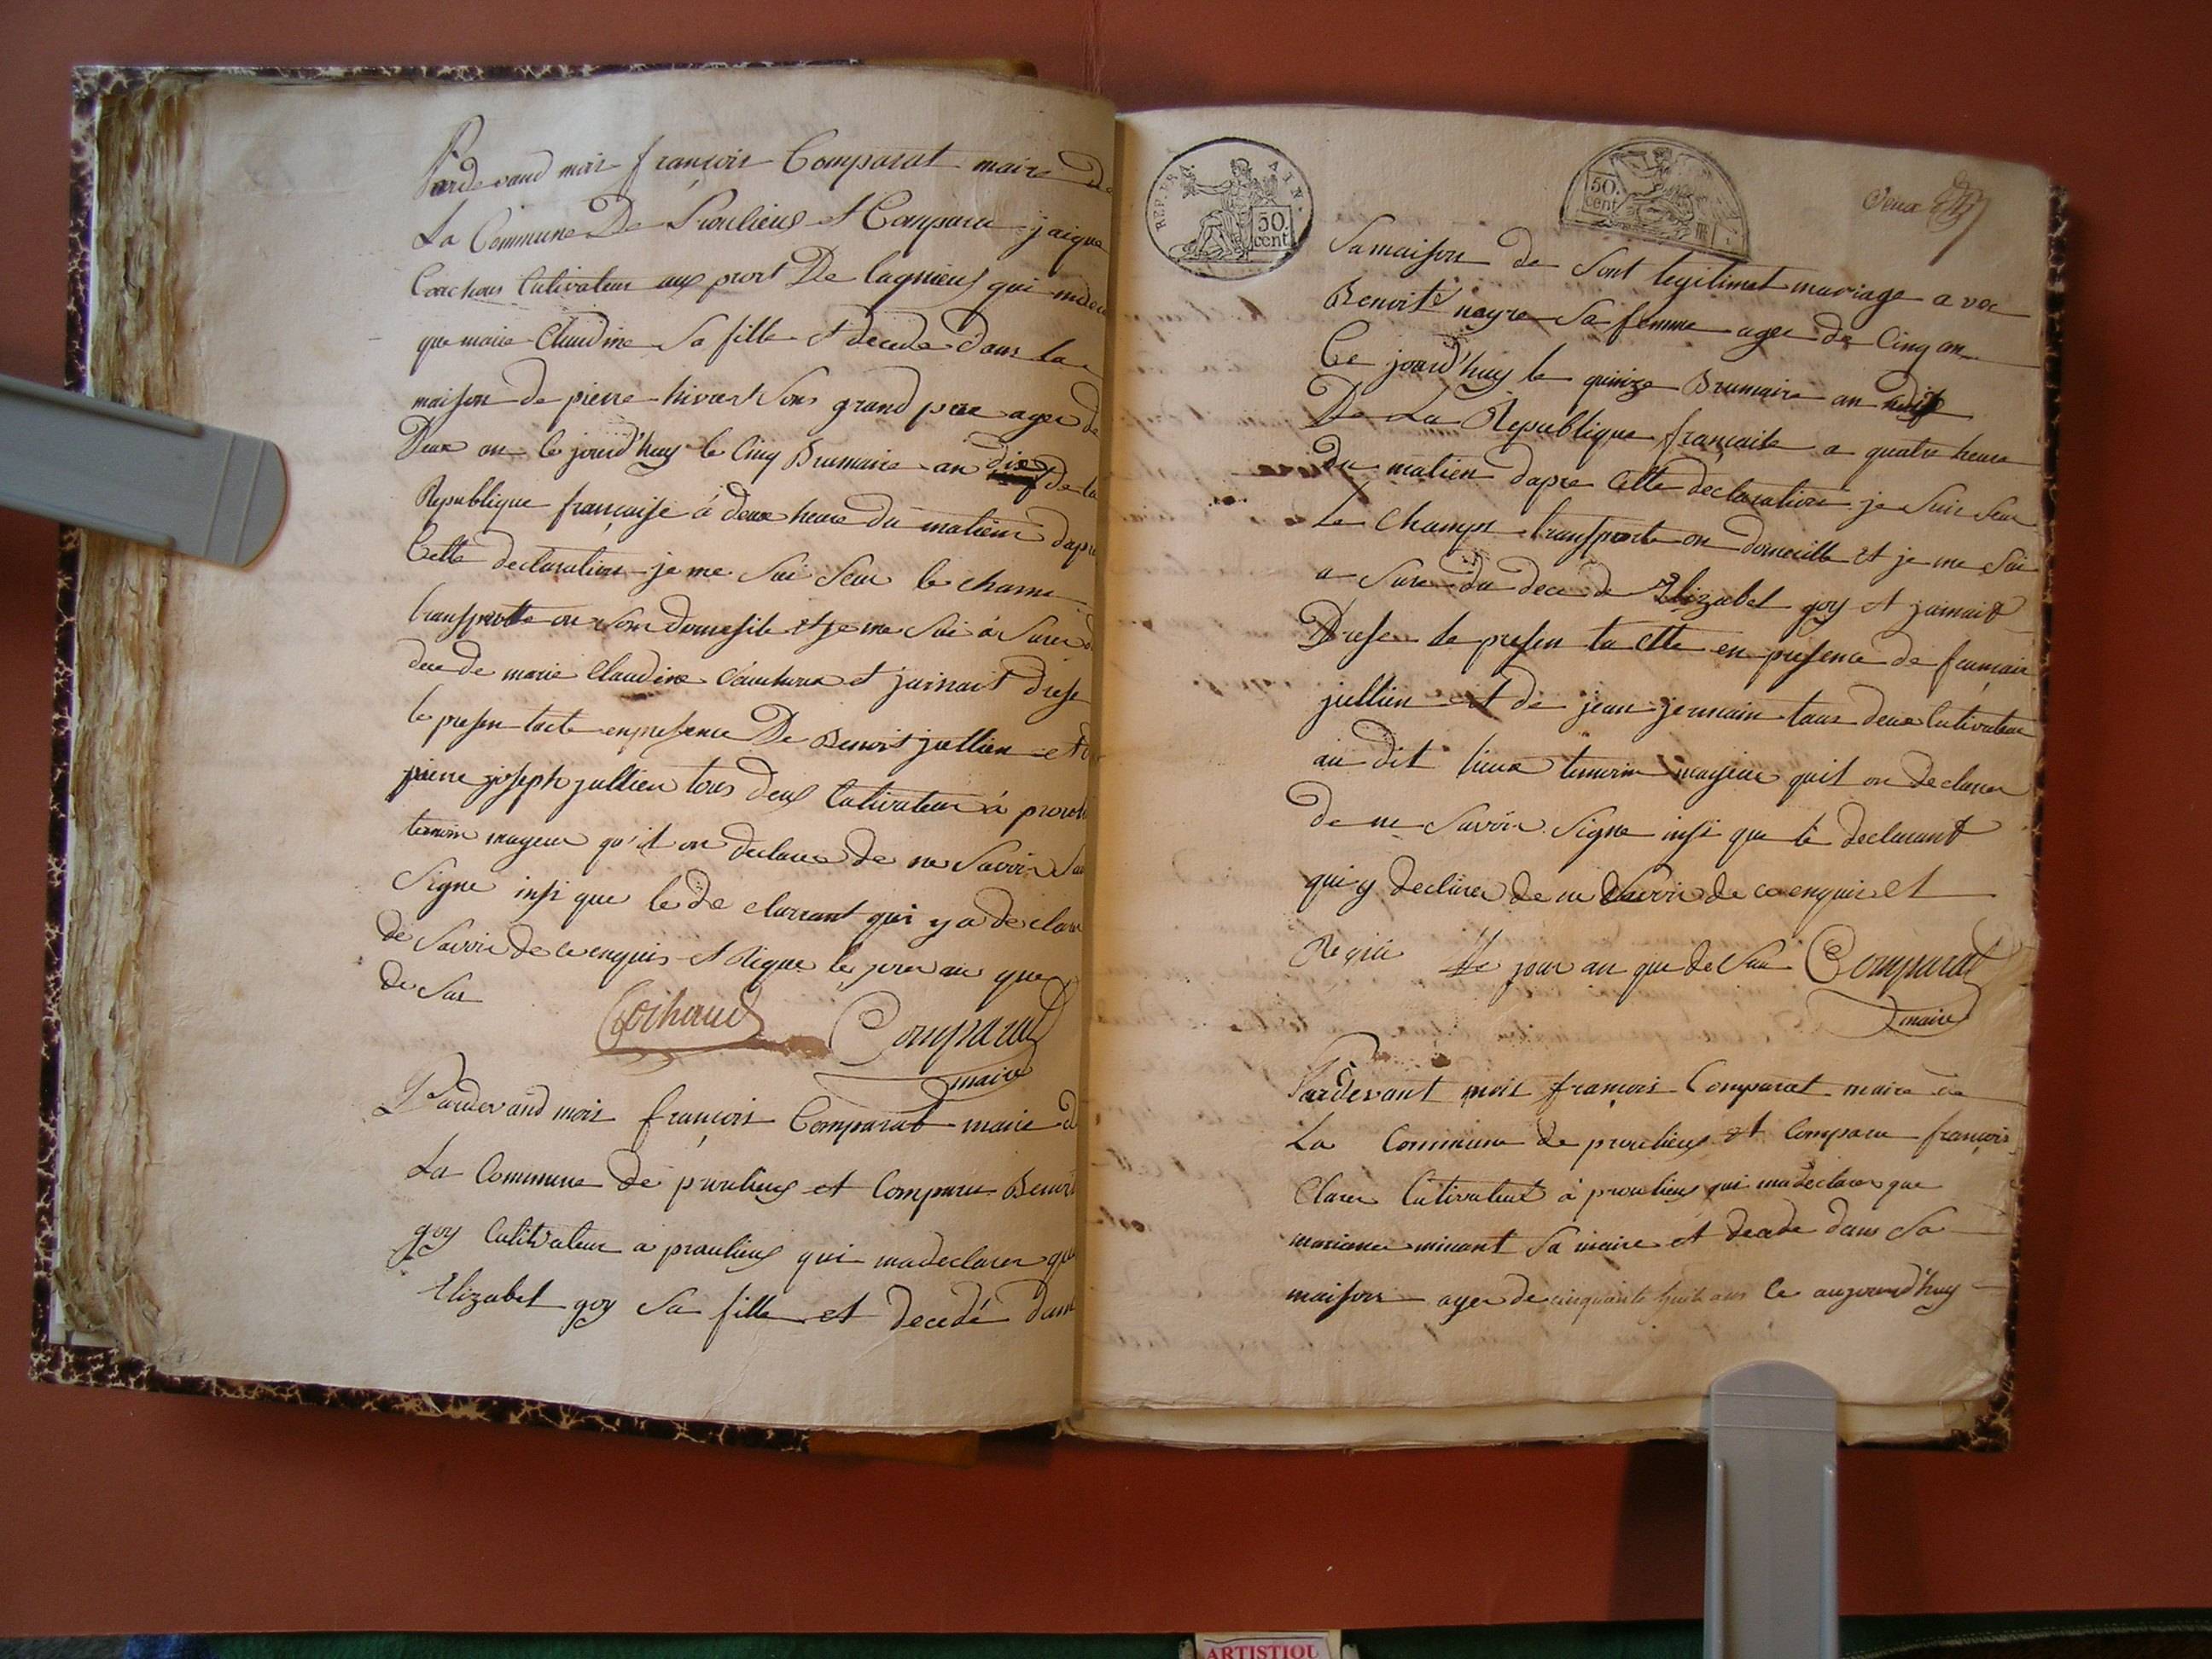 Pardevand mois françois Comparat maire de
La Commune De Proulieus et Comparu jaique
Cultivateur aux port De lagnieus qui
que marie Claudine Sa fille et decede dans la
maison de pierre Sons grand pere agee de
Deux an le jourd'huy le Cinq Brumaire an dix de la
Republique françaiſe à deux heure du matiens dapre
Cette declaration je me Sui Seur le cham
transportte on Son domesile et je me Sui à Surer d
dece de marie Claudine et jainait dreſe
le preſen tacte enpreſence De Benoit jullien et d
pierre joſeph jullien tous deus Cultivateur à proul
temoin mageur qu'il on declarer de ne Savoir
Signe inſi que le de clarrant qui y a de clarer
de Savoir de ce enquis et Signe les jour an que
de Sus
Cochaud Comparat
maire
Pardevand mois françois Comparat maire d
La Commune de proulieus et Comparu Benoit
goy Cultivateur a proulieus qui madeclarer que
Elizabet goy Sa fille et decedé dans
REP. FRA. AIN.
50. cent
50. cent
deux
Sa maiſon de Sont legitimet mariage avec
Benoite neyre Sa femme agee de Cinq an
Ce jourd'huy le quinze Brumaire an
De La Republique françaiſe a quatre heure
du matien dapre Cette declaration je Suis Seur
Le Champs transporte on domeille et je me Sui
a Sure du dece de Elizabet goy et jainait
Dreſer le preſen ta Ctte en preſence de françois
jullien et de jean jermain tous deux Cultivateur
au dit lieux temoin mageur quil on declarer
de ne Savoir Signe inſi que le declarant
qui y declarer de ne Savoir de ce enquis et
Le jour an que de Sus Comparat
maire
Pardevant mois françois Comparat maire de
La Commune de proulieus et Comparu françois
Claret Cultivateur à proulieus qui madeclarer que
mariane minant Sa maire et decede dans Sa
maiſon agee de cinquante huit ans Ce aujourd'huy
ARTISTIQU